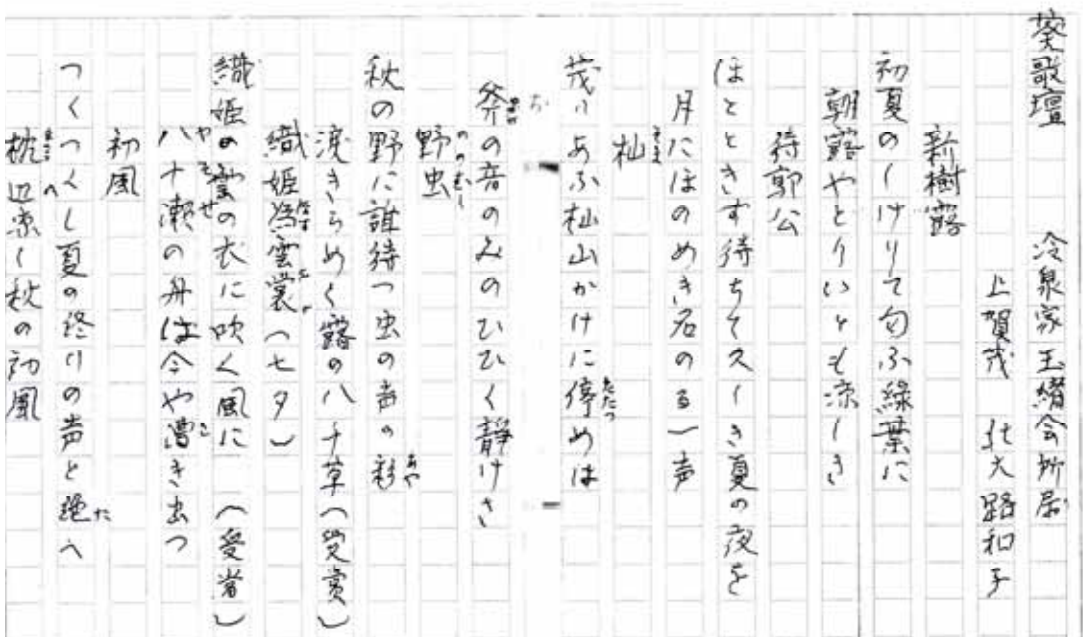 葵歌壇 冷泉家玉緒会所属
上賀茂 北大路和子
新樹露
初夏のしけりて匂ふ緑葉に
朝露やとりいとも涼しき
待郭公
ほとときす待ちて久しき夏の夜を
月にほのめき名のる一声
杣
茂りあふ杣山かけに停めは
斧の音のみのひひく静けさ
野虫
秋の野に誰待つ虫の声の彩
渡きらめく露の八千草(受賞)
織姫為雲裳(七夕)
織姫の雲の衣に吹く風に (受賞)
八十瀬の舟は今や漕き出つ
初風
つくつくし夏の終りの声と絶へ
枕辺涼し秋の初風